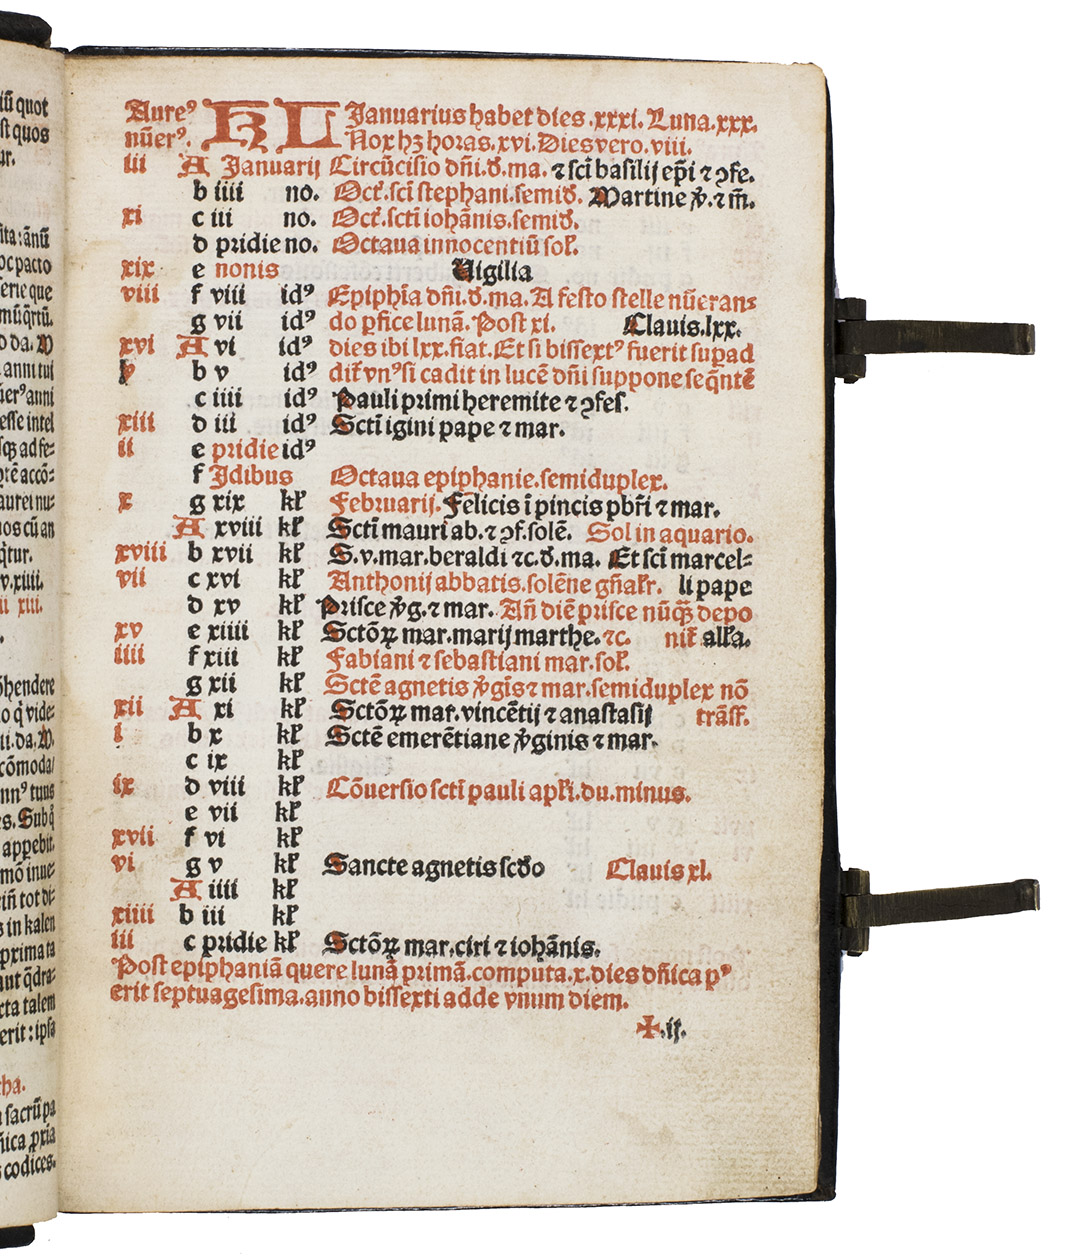 iũ quot
st quos
ur.
ita: ãnũ
oc pacto
serie que
mũ q̃rtũ.
o da. D
anni tui
ũer⁹ anni
esse intel
sq̃ ad fe⸗
ptẽ accõ⸗
aurei nu⸗
nos cũ an
q̃tur.
v. xiiii.
ii xiii.
õhendere
o q̃ vide⸗
ii. da. D.
cõmoda/
nn⁹ tuus
es. Sub q̃
appebit.
mõ inue⸗
ein̄ tot di⸗
s in kalen
prima ta
aut q̃dra⸗
cta talem
erit: ipsa
tha.
sacrũ pa
ñica ꝓxĩa
codices.
Aure⁹ KL Januarius habet dies .xxxi. Luna.xxx.
nũer⁹. Nox hꝫ horas.xvi. Dies vero.viii.
iii A Januarij Circũcisio dñi.d̃.ma. ⁊ scĩ basilij ep̃i ⁊ ꝯfe.
b iiii no. Oct̃.scĩ stephani.semid̃. Martine ꝟ̃.⁊ m̃.
xi c iii no. Oct̃.sctĩ iohãnis.semid̃.
d pridie no. Octaua innocentiũ sol̃.
xix e nonis Uigilia
viii f viii id⁹ Epiphĩa dñi.d̃.ma. A festo stelle nũeran⸗
g vii id⁹ do ꝑfice lunã. Post xi. Clauis.lxx.
xvi A vi id⁹ dies ibi lxx.fiat. Et si bissext⁹ fuerit supad
v b v id⁹ dit̃ vn⁹ si cadit in lucẽ dñi suppone seq̃ntẽ
c iiii id⁹ Pauli primi heremite ⁊ ꝯfes.
xiii d iii id⁹ Sctĩ igini pape ⁊ mar.
ii e pridie id⁹
f Jdibus Octaua epiphanie.semiduplex.
x g xix kl̃ Februarij. Felicis ĩ pincis pbr̃i ⁊ mar.
A xviii kl̃ Sctĩ mauri ab.⁊ ꝯf.solẽ. Sol in aquario.
xviii b xvii kl̃ S.v.mar.beraldi ⁊c.d̃.ma. Et scĩ marcel⸗
vii c xvi kl̃ Anthonij abbatis.solẽne gñal̃r. li pape
d xv kl̃ Prisce ꝟ̃g.⁊ mar. Añ diẽ prisce nũq̃ʒ depo
xv e xiiii kl̃ Sctõꝝ mar.marij marthe.⁊c. nit̃ all̃a.
iiii f xiii kl̃ Fabiani ⁊ sebastiani mar.sol̃.
g xii kl̃ Sctẽ agnetis ꝟ̃gĩs ⁊ mar.semiduplex nõ
xii A xi kl̃ Sctõꝝ mar.vincẽtij ⁊ anastasij trãsf.
i b x kl̃ Sctẽ emerẽtiane ꝟ̃ginis ⁊ mar.
c ix kl̃
ix d viii kl̃ Cõuersio sctĩ pauli apl̃i.du.minus.
e vii kl̃
xvii f vi kl̃
vi g v kl̃ Sancte agnetis scd̃o Clauis xl.
A iiii kl̃
xiiii b iii kl̃
iii c pridie kl̃ Sctõꝝ mar.ciri ⁊ iohãnis.
Post epiphaniã quere lunã primã.computa.x.dies dñica p⁹
erit septuagesima.anno bissexti adde vnum diem.
✠.ij.